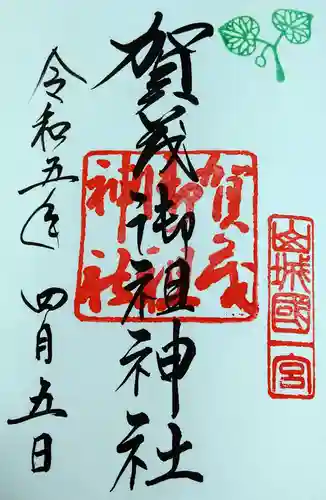 山城國一宮
賀茂御祖神社
賀茂御祖神社
令和五年 四月五日